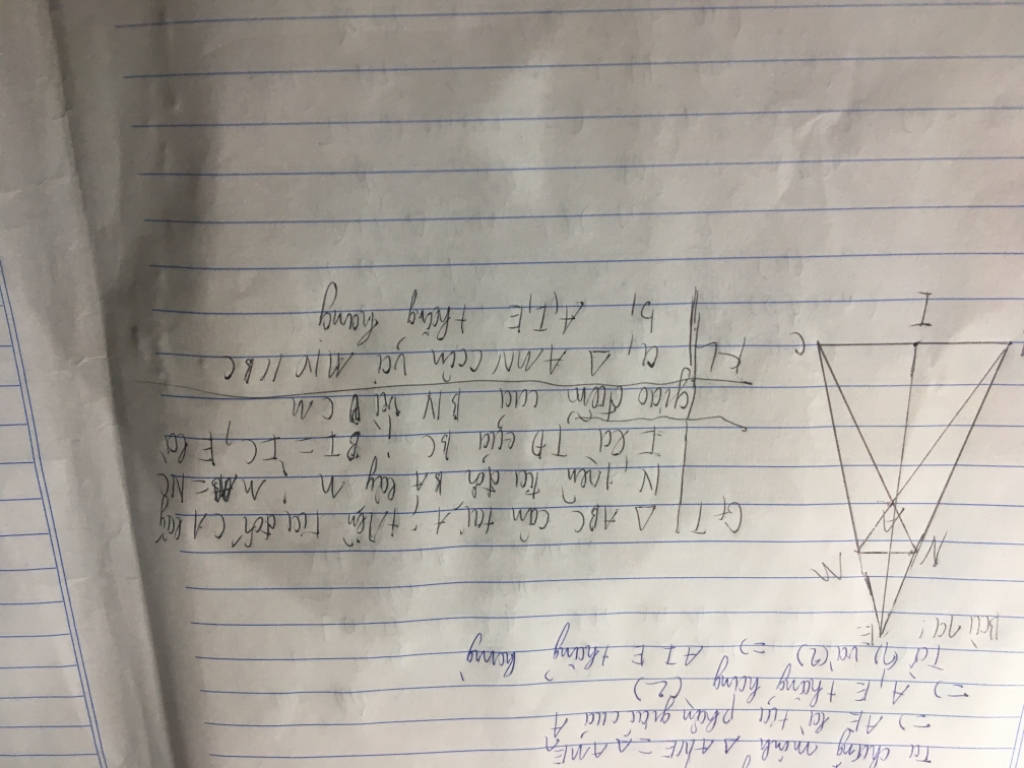 Ta chứng minh ΔANE = ΔAME
=> AE là tia phân giác của A
=> A, E thẳng hàng (2)
Từ (1) và (2) => A I E thẳng hàng
Bài 7a:
E
N
M
A
C
I
GT Δ ABC cân tại A, trên tia đối CA lấy
N, trên tia đối BA lấy M, MB = NC
I là TĐ của BC, BI = IC, E là
giao điểm của BN và CM
KL a, Δ AMN cân và MN // BC
b, A, I, E thẳng hàng